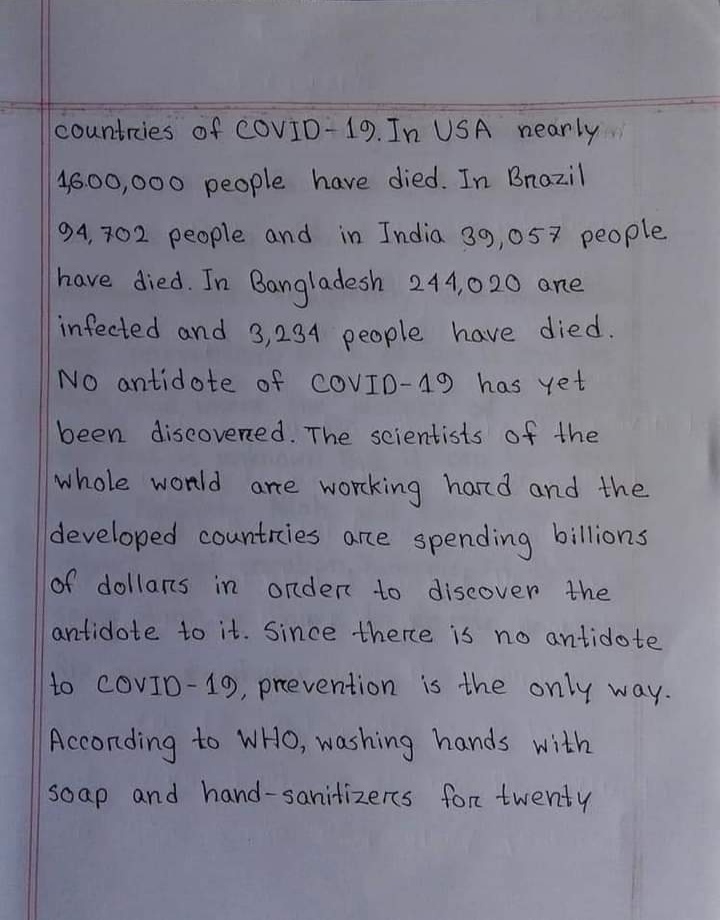 countries of COVID-19. In USA nearly
1,600,000 people have died. In Brazil
94,702 people and in India 39,057 people
have died. In Bangladesh 244,020 are
infected and 3,234 people have died.
No antidote of COVID-19 has yet
been discovered. The scientists of the
whole world are working hard and the
developed countries are spending billions
of dollars in order to discover the
antidote to it. Since there is no antidote
to COVID-19, prevention is the only way.
According to WHO, washing hands with
soap and hand-sanitizers for twenty